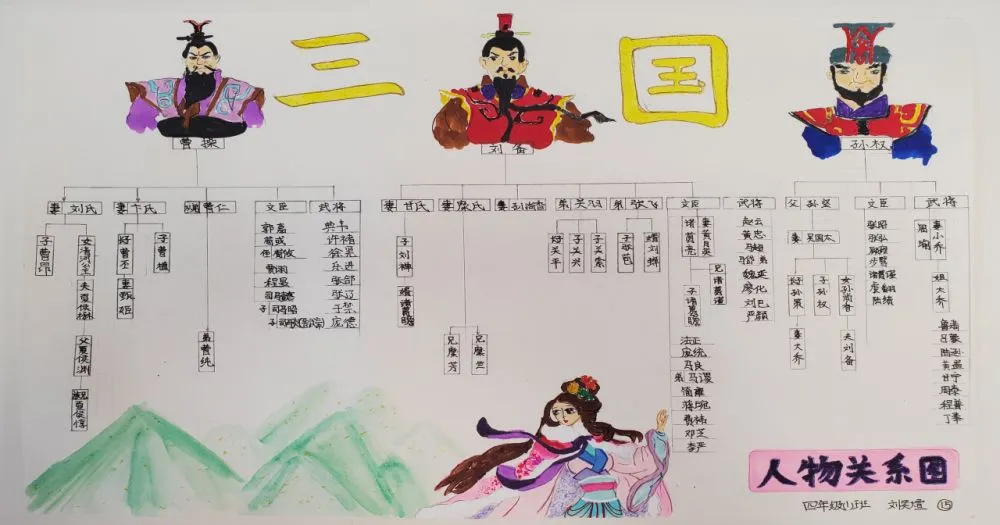 三国
曹操
刘备
孙权
妻 刘氏
妻 卞氏
曹仁
文臣
武将
妻 甘氏
妻 糜氏
妻 孙尚香
弟 关羽
弟 张飞
文臣
武将
父 孙坚
文臣
武将
子曹昂
女清河公主
夫夏侯楙
父夏侯渊
夏侯惇
子曹丕
妻甄姬
子曹植
弟曹纯
郭嘉
荀彧
荀攸
程昱
子司马昭
典韦
许褚
徐晃
乐进
张郃
张辽
于禁
庞德
子刘禅
兄糜芳
兄糜竺
关平
子关兴
子关索
子张苞
婿刘禅
诸葛亮
妻黄月英
兄诸葛瑾
子诸葛瞻
法正
庞统
马良
弟马谡
简雍
蒋琬
费祎
邓芝
李严
赵云
黄忠
马超
马岱
魏延
廖化
刘巴
严颜
妻 吴国太
孙策
子孙权
女孙尚香
妻大乔
夫刘备
张昭
张弘
顾雍
步骘
诸葛瑾
虞翻
陆绩
周瑜
妻小乔
姐大乔
鲁肃
吕蒙
陆逊
黄盖
甘宁
周泰
程普
丁奉
人物关系图
四年级(1)班 15